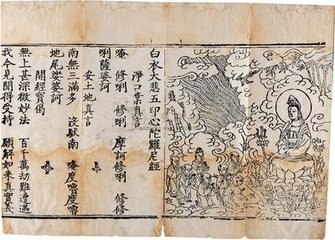 白衣大悲五印心陀羅尼經
淨口業真言
唵 修唎 修唎 摩訶修唎 修修
唎薩婆訶
安土地真言
南無三滿多 没馱喃 唵度嚕度嚕
地尾娑婆訶
開經寶偈
無上甚深微妙法 百千萬劫難遭遇
我今見聞得受持 願解如來真實義